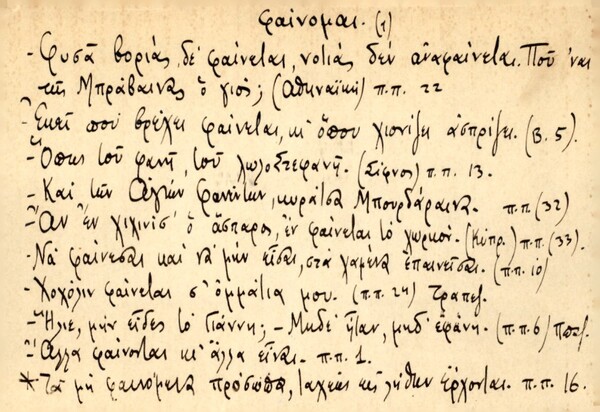 φαίνομαι. (1)
- Φυσᾶ βοριάς, δὲ φαίνεται, νοτιάς δέν ἀναφαίνεται. Ποῦ 'ναι
τῆς Μπράβαινας ὁ γιός; (Ἀθηναϊκή) π.π. 22
- Ἐκεῖ πού βρέχει φαίνεται, κι' ὅπου χιονίζει ἀσπρίζει. (Β. 5).
- Ὅπως τοῦ φανῆ, τοῦ Λωλοστεφανῆ. (Σίφνος) π.π. 13.
- Καί τῶν Ἁγιῶν φανῆτων, κυράτσα Μπουρδάραινα. π.π (32)
- Ἄν ἔν χιχινίσ' ὁ ἄππαρος, ἐν φαίνεται τό χωρκόν. (Κύπρ.) π.π. (33).
- Νά φαίνεσαι καί νά μήν εἶσαι, στά χαμένα ἐπαινεῖσαι. (π.π. 10)
- Χοχόλιν φαίνεται σ' ὀμμάτια μου. (π.π. 24) Τραπεζ.
- Ἥλιε, μήν εἶδες τό Γιάννη; - Μηδέ ἦταν, μηδ' ἐφάνη. (π.π. 6)
- Ἄλλα φαίνονται κι' ἄλλα εἶναι. π.π. 1.
* Τά μή φαινόμενα πρόσωπα, ταχέως εἰς λήθην ἔρχονται. π.π. 16.